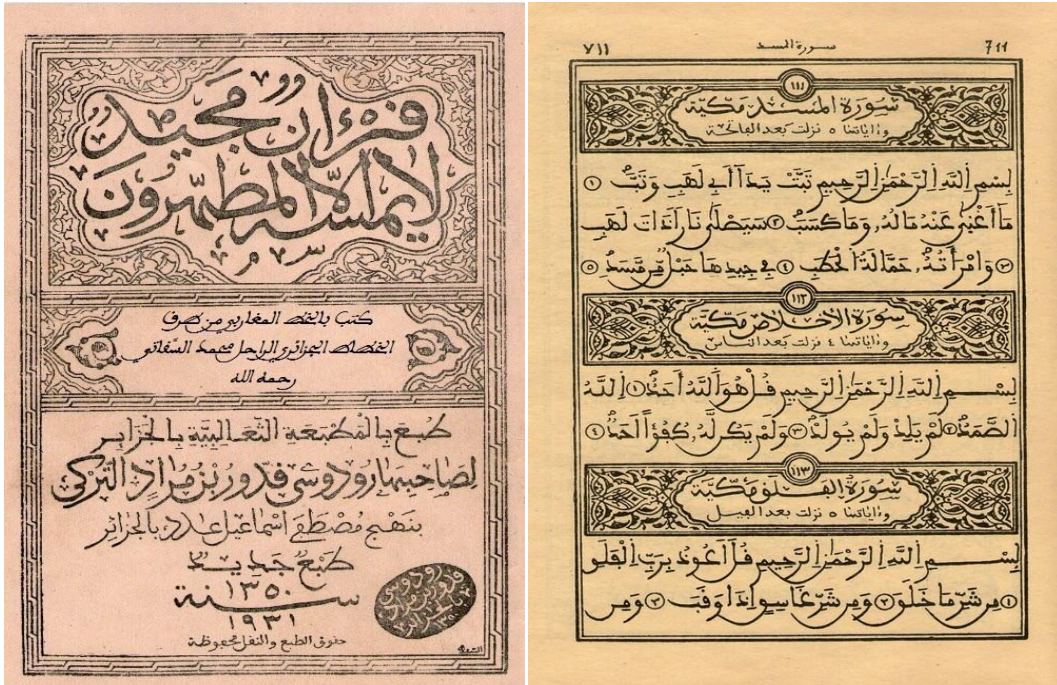 فرءان مجيد
لا يمسه إلا المطهرون
كتب بالخط المغاربي من طرف
الخطاط الجزائري الراحل محمد السفاتي
رحمه الله
طبع بالمطبعة الثعالبية بالجزاير
لصاحبها رودوسي فدور بن مراد التركي
بنهج مصطفى اسماعيل عدد بالجزائر
طبع جديد
١٣٥٠
سنة
١٩٣١
حقوق الطبع والنقل محفوظة
711 سورة المسد ٧١١
١١١
سُورَةُ المَسَدِ مَكِّيَّة
وءاياتها ٥ نزلت بعد الفاتحة
بِسْمِ اِللَّهِ اِلرَّحْمَٰنِ اِلرَّحِيمِ تَبَّتْ يَدَآ أَبِے لَهَبٍ وَتَبَّ ١
مَآ أَغْنَىٰ عَنْهُ مَالُهُۥ وَمَا كَسَبَ ٢ سَيَصْلَىٰ نَارًا ذَاتَ لَهَبٍ
٣ وَامْرَأَتُهُۥ حَمَّالَةُ الْحَطَبِ ٤ فِے جِيدِهَا حَبْلٌ مِّن مَّسَدٍ ٥
١١٢
سُورَةُ الاخلاص مَكِّيَّة
وءاياتها ٤ نزلت بعد الناس
بِسْمِ اِللَّهِ اِلرَّحْمَٰنِ اِلرَّحِيمِ فُلْ هُوَ اَللَّهُ أَحَدٌ ١ اِللَّهُ
اُلصَّمَدُ ٢ لَمْ يَلِدْ وَلَمْ يُولَدْ ٣ وَلَمْ يَكُن لَّهُۥ كُفُؤًا اَحَدٌ ٤
١١٣
سُورَةُ الفلق مَكِّيَّة
وءاياتها ٥ نزلت بعد الفيل
بِسْمِ اِللَّهِ اِلرَّحْمَٰنِ اِلرَّحِيمِ فُلَ اَعُوذُ بِرَبِّ اِلْفَلَقِ
١ مِن شَرِّ مَا خَلَقَ ٢ وَمِن شَرِّ غَاسِقٍ اِذَا وَفَبَ ٣ وَمِن